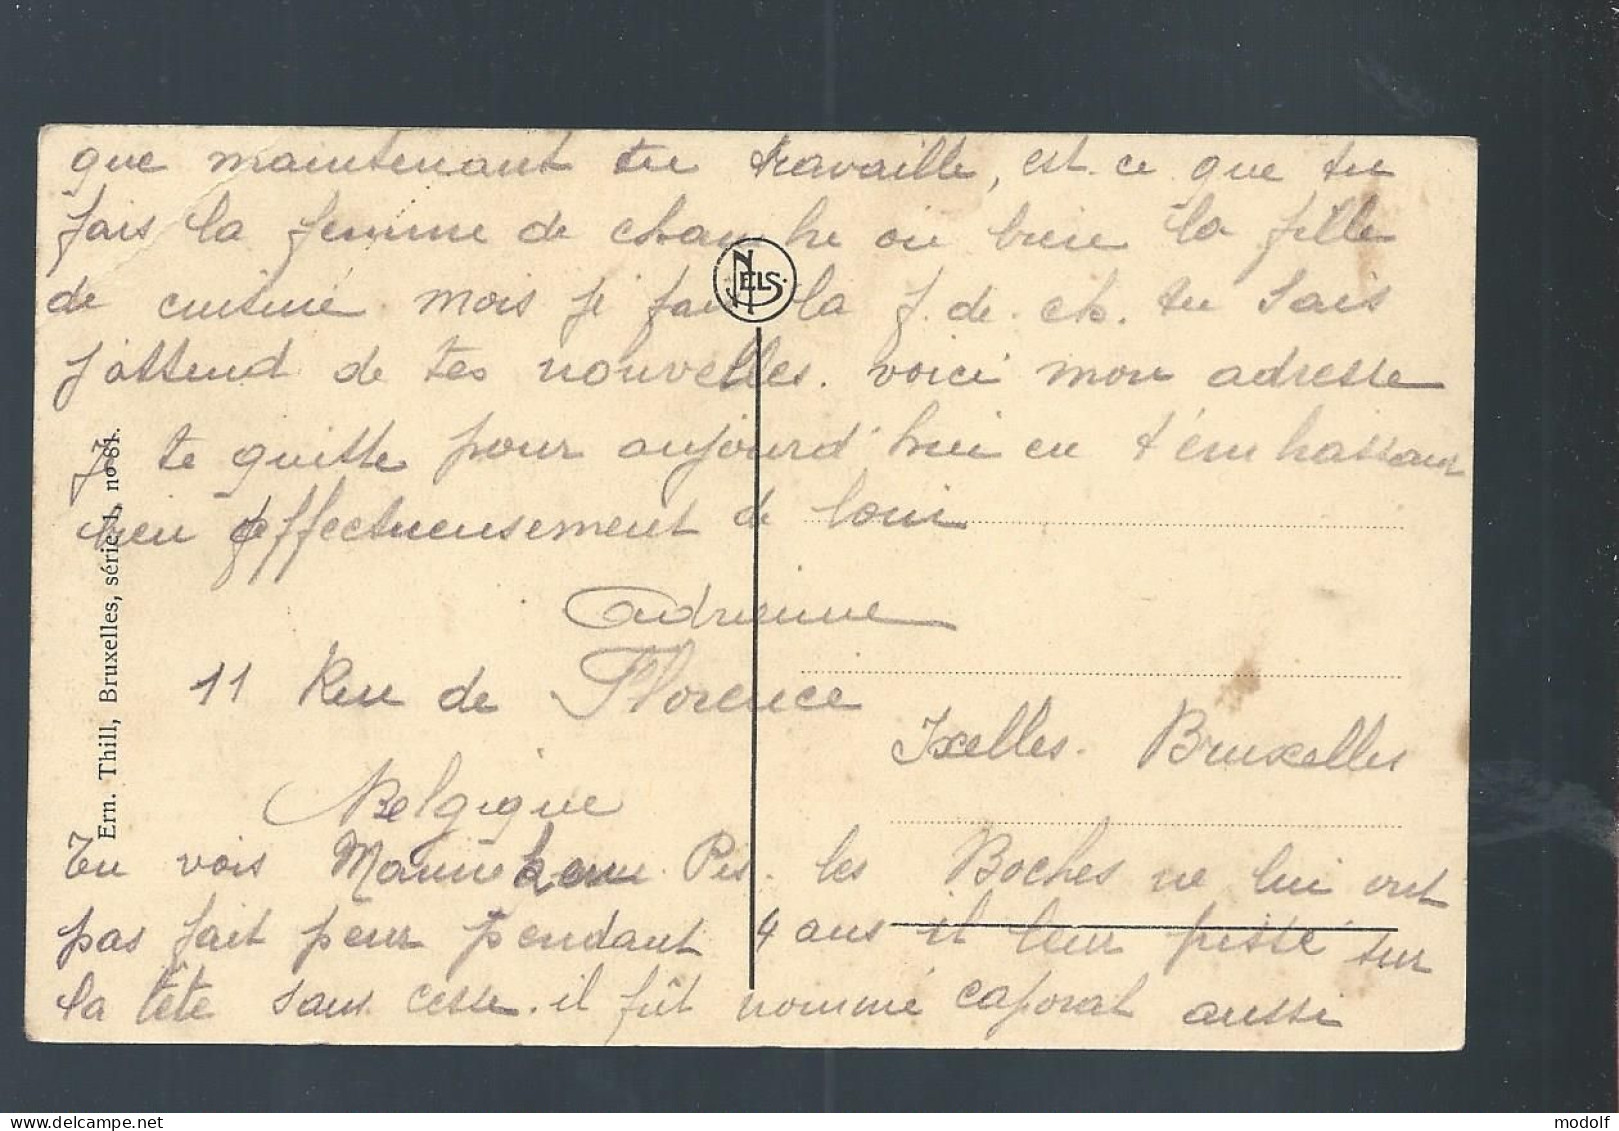 que maintenant tu travaille, est ce que tu
fais la femme de chambre ou bien la fille
de cuisine mois je fais la f. de. ch. tu sais
j'attend de tes nouvelles. voici mon adresse
Je te quitte pour aujourd'hui en t'embrassant
bien affectueusement de loin
Adrienne
11 Rue de Florence
Ixelles. Bruxelles
Belgique
Tu vois Manneken. Pis. les Boches ne lui ont
pas fait peur pendant 4 ans il leur pissé sur
la tête sans cesse. il fût nommé caporal aussi
NELS
Ern. Thill, Bruxelles, série 1, no 81.
modolf